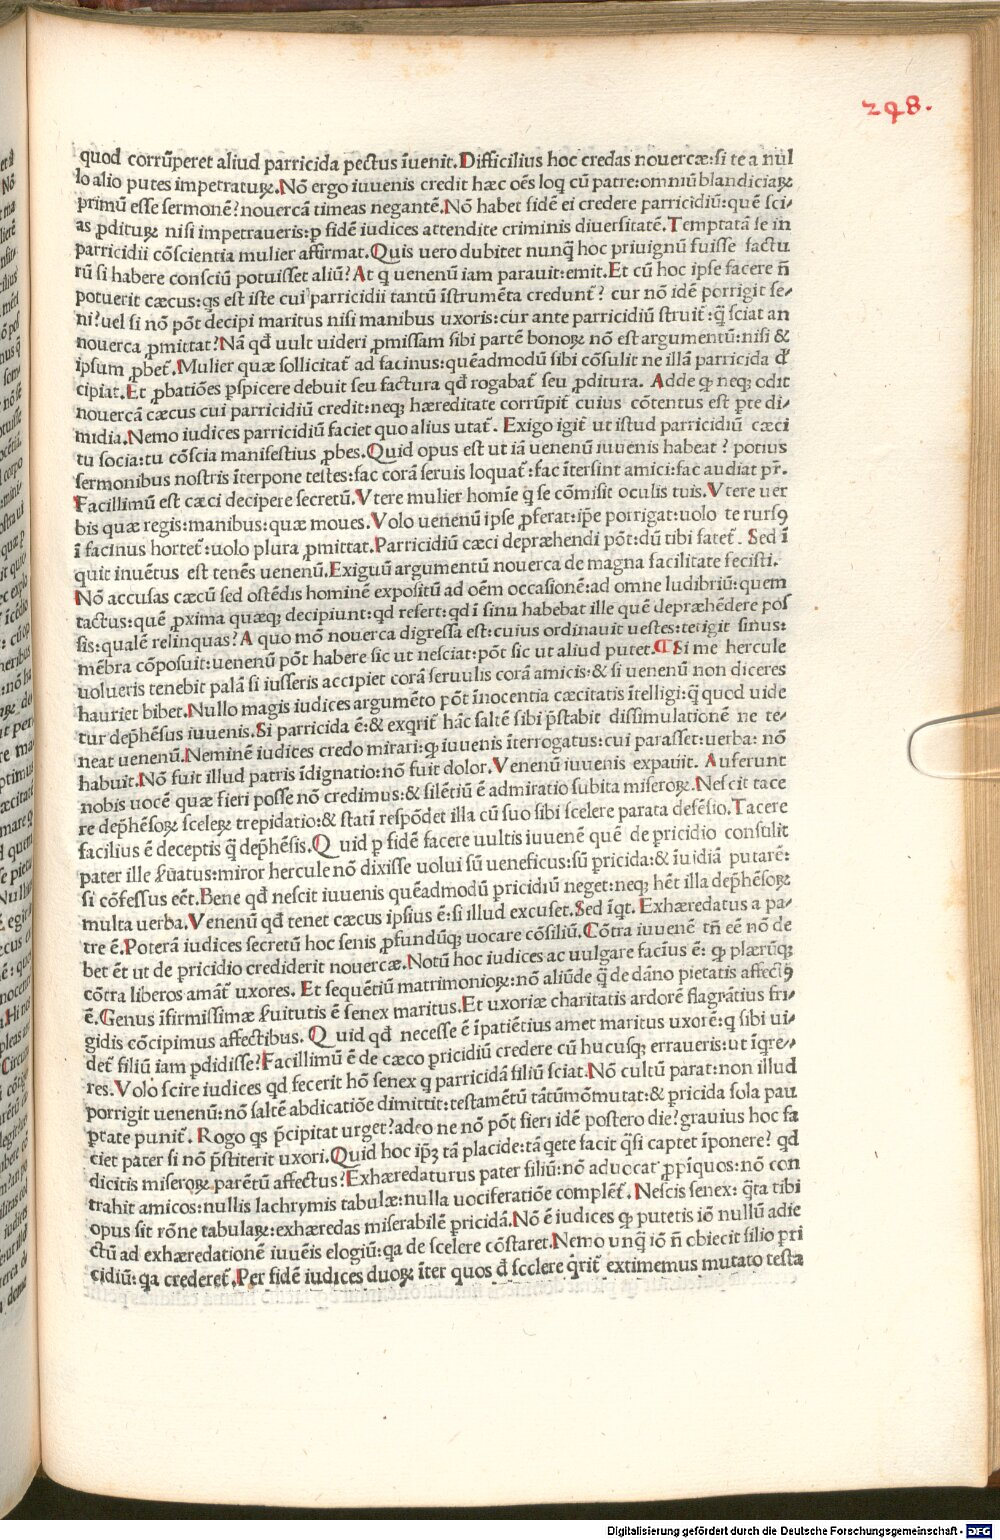 248.
quod corrũperet aliud parricida pectus ĩuenit. Difficilius hoc credas nouercæ: si te a nũl
lo alio putes impetraturꝝ. Nõ ergo iuuenis credit hæc oẽs loq̃ cũ patre: omniũ blandiciaꝝ
primũ esse sermonẽ? nouercã timeas negantẽ. Nõ habet fidẽ ei credere parricidiũ: quẽ sci⸗
as ꝓditurꝝ nisi impetraueris: ꝑ fidẽ iudices attendite criminis diuersitatẽ. Temptatã se in
parricidii cõscientia mulier affirmat. Quis uero dubitet nunq̃ hoc priuignũ fuisse factu
rũ si habere consciũ potuisset aliũ? At q̃ uenenũ iam parauit: emit. Et cũ hoc ipse facere ñ
potuerit cæcus: q̃s est iste cui parricidii tantũ ĩstrumẽta credunt̃? cur nõ idẽ porrigit se⸗
ni? uel si nõ põt decipi maritus nisi manibus uxoris: cur ante parricidiũ struit̃: q̃ sciat an
nouerca ꝓmittat? Nã qđ uult uideri ꝓmissam sibi partẽ bonoꝝ nõ est argumentũ: nisi &
ipsum ꝓbet̃. Mulier quæ sollicitat̃ ad facinus: quẽadmodũ sibi cõsulit ne illã parricida đ
cipiat. Et ꝓbatiões ꝑspicere debuit seu factura qđ rogabat̃ seu ꝓditura. Adde ꝙ neqꝫ odit
nouercã cæcus cui parricidiũ credit: neqꝫ hæreditate corrũpit̃ cuius cõtentus est ꝑte di⸗
midia. Nemo iudices parricidiũ faciet quo alius utat̃. Exigo igit̃ ut istud parricidiũ cæci
tu socia: tu cõscia manifestius ꝓbes. Quid opus est ut iã uenenũ iuuenis habeat? potius
sermonibus nostris ĩterpone testes: fac corã seruis loquat̃: fac ĩtersint amici: fac audiat pr̃.
Facillimũ est cæci decipere secretũ. Vtere mulier homĩe q̃ se cõmisit oculis tuis. Vtere uer
bis quæ regis: manibus: quæ moues. Volo uenenũ ipse ꝓferat: ip̃e porrigat: uolo te rursꝰ
ĩ facinus hortet̃: uolo plura ꝓmittat. Parricidiũ cæci depræhendi põt: dũ tibi fatet̃. Sed ĩ
quit inuẽtus est tenẽs uenenũ. Exiguũ argumentũ nouerca de magna facilitate fecisti.
Nõ accusas cæcũ sed ostẽdis hominẽ expositũ ad oẽm occasionẽ: ad omne ludibriũ: quem
tactus: quẽ ꝓxima quæqꝫ decipiunt: qđ refert: qđ ĩ sinu habebat ille quẽ depræhẽdere pos
sis: qualẽ relinquas? A quo mõ nouerca digressa est: cuius ordinauit uestes: tetigit sinus:
mẽbra cõposuit: uenenũ põt habere sic ut nesciat: põt sic ut aliud putet. ¶ Si me hercule
uolueris tenebit palã si iusseris accipiet corã seruulis corã amicis: & si uenenũ non diceres
hauriet bibet. Nullo magis iudices argumẽto põt ĩnocentia cæcitatis ĩtelligi: q̃ quod uide
tur dep̃hẽsus iuuenis. Si parricida ẽ: & exq̃rit̃ hãc saltẽ sibi p̃stabit dissimulationẽ ne te⸗
neat uenenũ. Neminẽ iudices credo mirari: ꝙ iuuenis ĩterrogatus: cui parasset: uerba nõ
habuit. Nõ fuit illud patris ĩdignatio: nõ fuit dolor. Venenũ iuuenis expauit. Auferunt
nobis uocẽ quæ fieri posse nõ credimus: & silẽtiũ ẽ admiratio subita miseroꝝ. Nescit tace
re dep̃hẽsoꝝ sceleꝝ trepidatio: & statĩ respõdet illa cũ suo sibi scelere parata defẽsio. Tacere
facilius ẽ deceptis q̃ dep̃hẽsis. Quid ꝑ fidẽ facere uultis iuuenẽ quẽ de pricidio consulit
pater ille seruatus: miror hercule nõ dixisse uolui sũ ueneficus: sũ pricida: & ĩuidiã putarẽ:
si cõfessus eẽt. Bene qđ nescit iuuenis quẽadmodũ pricidiũ neget: neqꝫ hẽt illa dep̃hẽsoꝝ
multa uerba. Venenũ qđ tenet cæcus ipsius ẽ: si illud excuset. Sed ĩqt. Exhæredatus a pa⸗
tre ẽ. Poterã iudices secretũ hoc senis ꝓfundũqꝫ uocare cõsiliũ. Cõtra iuuenẽ tñ eẽ nõ de
bet ẽt ut de pricidio crediderit nouercæ. Notũ hoc iudices ac uulgare facĩus ẽ: ꝙ plærũqꝫ
cõtra liberos amãt̃ uxores. Et sequẽtiũ matrimonioꝝ: nõ aliũde q̃ de dãno pietatis affectꝰ
ẽ. Genus ĩfirmissimæ seruitutis ẽ senex maritus. Et uxoriæ charitatis ardorẽ flagrãtius fri⸗
gidis cõcipimus affectibus. Quid qđ necesse ẽ ĩpatiẽtius amet maritus uxorẽ: q̃ sibi ui⸗
det̃ filiũ iam ꝑdidisse? Facillimũ ẽ de cæco pricidiũ credere cũ hucusqꝫ erraueris: ut ĩq̃re⸗
res. Volo scire iudices qđ fecerit hõ senex q̃ parricidã filiũ sciat. Nõ cultũ parat: non illud
porrigit uenenũ: nõ saltẽ abdicatiõe dimittit: testamẽtũ tãtũmõmutat: & pricida sola pau
ꝑtate punit̃. Rogo q̃s p̃cipitat urget? adeo ne nõ põt fieri idẽ postero die? grauius hoc fa
ciet pater si nõ p̃stiterit uxori. Quid hoc ip̃ꝫ tã placide: tã q̃ete facit q̃si captet ĩponere? qđ
dicitis miseroꝝ parẽtũ affectus? Exhæredaturus pater filiũ: nõ aduocat ꝓpĩquos: nõ con
trahit amicos: nullis lachrymis tabulæ: nulla uociferatiõe complẽt̃. Nescis senex: q̃ta tibi
opus sit rõne tabulaꝝ: exhæredas miserabilẽ pricidã. Nõ ẽ iudices ꝙ putetis iõ nullũ adie
ctũ ad exhæredationẽ iuuẽis elogiũ: q̃a de scelere cõstaret. Nemo unq̃ iõ ñ obiecit filio pri
cidiũ: q̃a crederet̃. Per fidẽ iudices duoꝝ ĩter quos đ scelere q̃rit̃ extimemus mutato testa
Digitalisierung gefördert durch die Deutsche Forschungsgemeinschaft - DFG